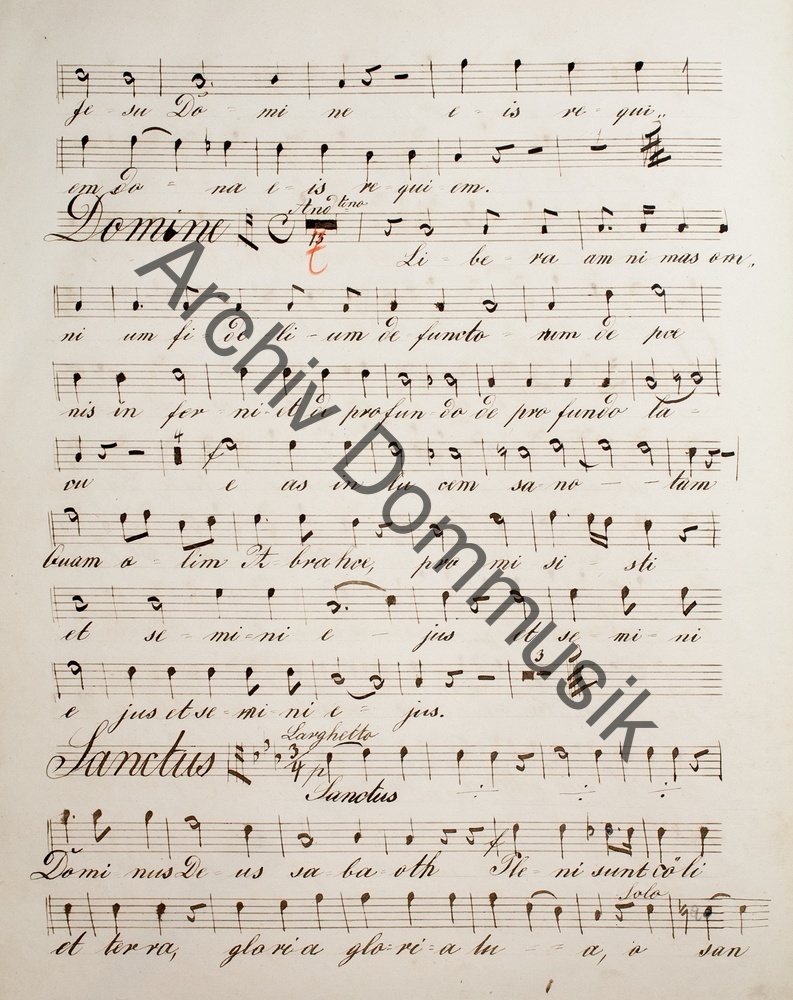 Je - su Do - mi ne e - is re - qui„
em do - na e - is re - qui em.
Domine Andtino 15
Li - be - ra am ni mas om„
ni um fi de li - um de functo - rum de poe
nis in fer - ni - et de profun - do de profundo la -
cu 4 f e as in lu cem sa no - - tam
Quam o - lim A - brahoe, pro - mi si - sti
et se - mi - ni e - jus et se mi - ni
3
e jus et se - mi - ni e = jus.
Sanctus Larghetto 3/4 p
Sanctus
Domi nus De - us sa - ba - oth f Ple - ni sunt cöli
Solo
et ter ra, gloria glo - ri - a tu - - a, o san
Archiv Dommusik